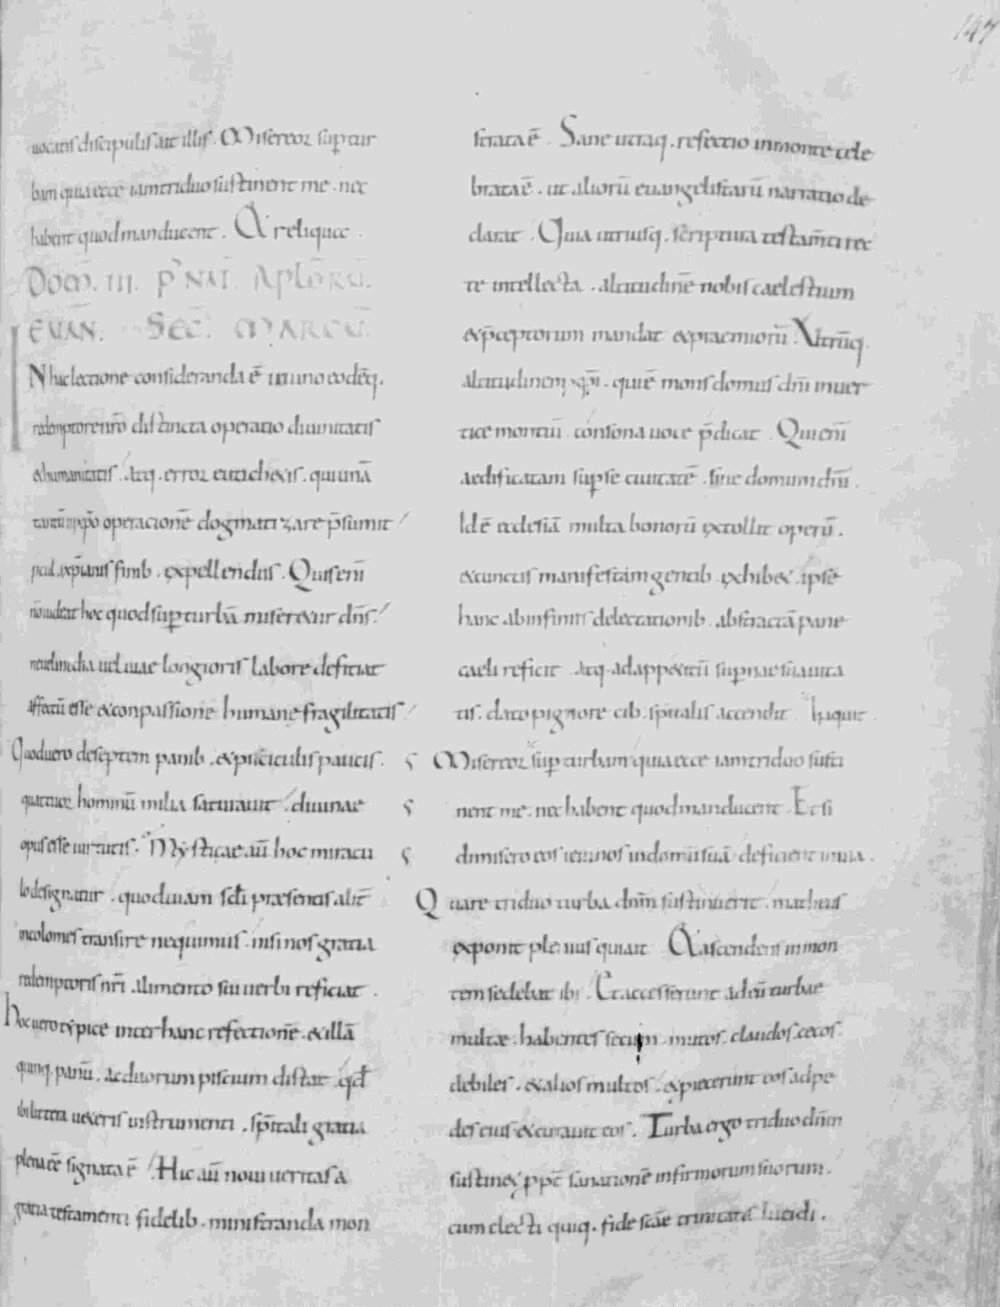 147
uocatis discipulis ait illis. Misereor sup tur
bam quia ecce iam triduo sustinent me. nec
habent quod manducent. Et reliquę.
DOM. III. P NAT̄. APLORŪ.
EVAN. SEC. MARCŪ.
IN hac lectione consideranda ē in uno eodeq.
redemptore nr̄o distincta operatio diuinitatis
& humanitatis. Atq. error euticħetis. qui unā
tantū in xp̄o operacionē dogmatizare p̄sumit
pcul. a xp̄ianis finib. expellendus. Quis eni
nō uideat hoc quod sup turbā miser&ur dn̄s.
ne uel inedia uel uiae longioris labore deficiat
affectū esse & conpassionē humane fragilitatis
Quod uero de septem panib. & pisciculis paucis.
quattuor hominū milia saturauit. diuinae
opus esse uirtutis. Mysticae aū hoc miracu
lo designatur. quod uiam sc̄li praesentis alit̄
incolomes transire nequimus. nisi nos gratia
redemptoris nr̄i alimento sui uerbi reficiat.
Hoc uero typice inter hanc refectionē & illā
quinq. panū. ac duorum piscium distat. qd̄
ibi littera ueteris instrumenti. spiritali gratia
plena eē signata ē. Hic aū noui ueritas a
gratia testamenti fidelib. ministranda mon
strata ē. Sane utraq. refectio in monte cele
brata ē. ut aliorū euangelistarū narratio de
clarat. Quia utriusq. scriptura testam̄ti rec
te intellecta. altitudinē nobis caelestium
& p̄ceptorum mandat & praemiorū. Utriusq.
altitudinem xp̄m. qui ē mons domus dn̄i in uer
tice montiū consona uoce p̄dicat. Qui enī
aedificatam sup se ciuitatē. siue domum dn̄i.
Id ē ecclesiā multa bonorū extollit operū.
& cunctis manifestam gentib. exhib&. ipse
hanc ab infimis delectationib. abstractā pane
caeli reficit. Atq. ad app&itū supnae suauita
tis. dato pignore cib. spiritalis accendit. Inquit
Misereor sup turbam quia ecce iam triduo susti
nent me. nec habent quod manducent. Et si
dimisero eos ieiunos in domū suā deficient in uia.
Quare triduo turba dn̄m sustinuerit. matheus
exponit plenius qui ait. Et ascendens in mon
tem sedebat ibi. Et accesserunt ad eū turbae
multae. habentes secum mutos. claudos. cecos.
debiles. & alios multos. & piecerunt eos ad pe
des eius & curauit eos. Turba ergo triduo dn̄m
sustin&. ppt̄ sanationē infirmorum suorum.
cum electi quiq. fide sc̄ae trinitatis lucidi.